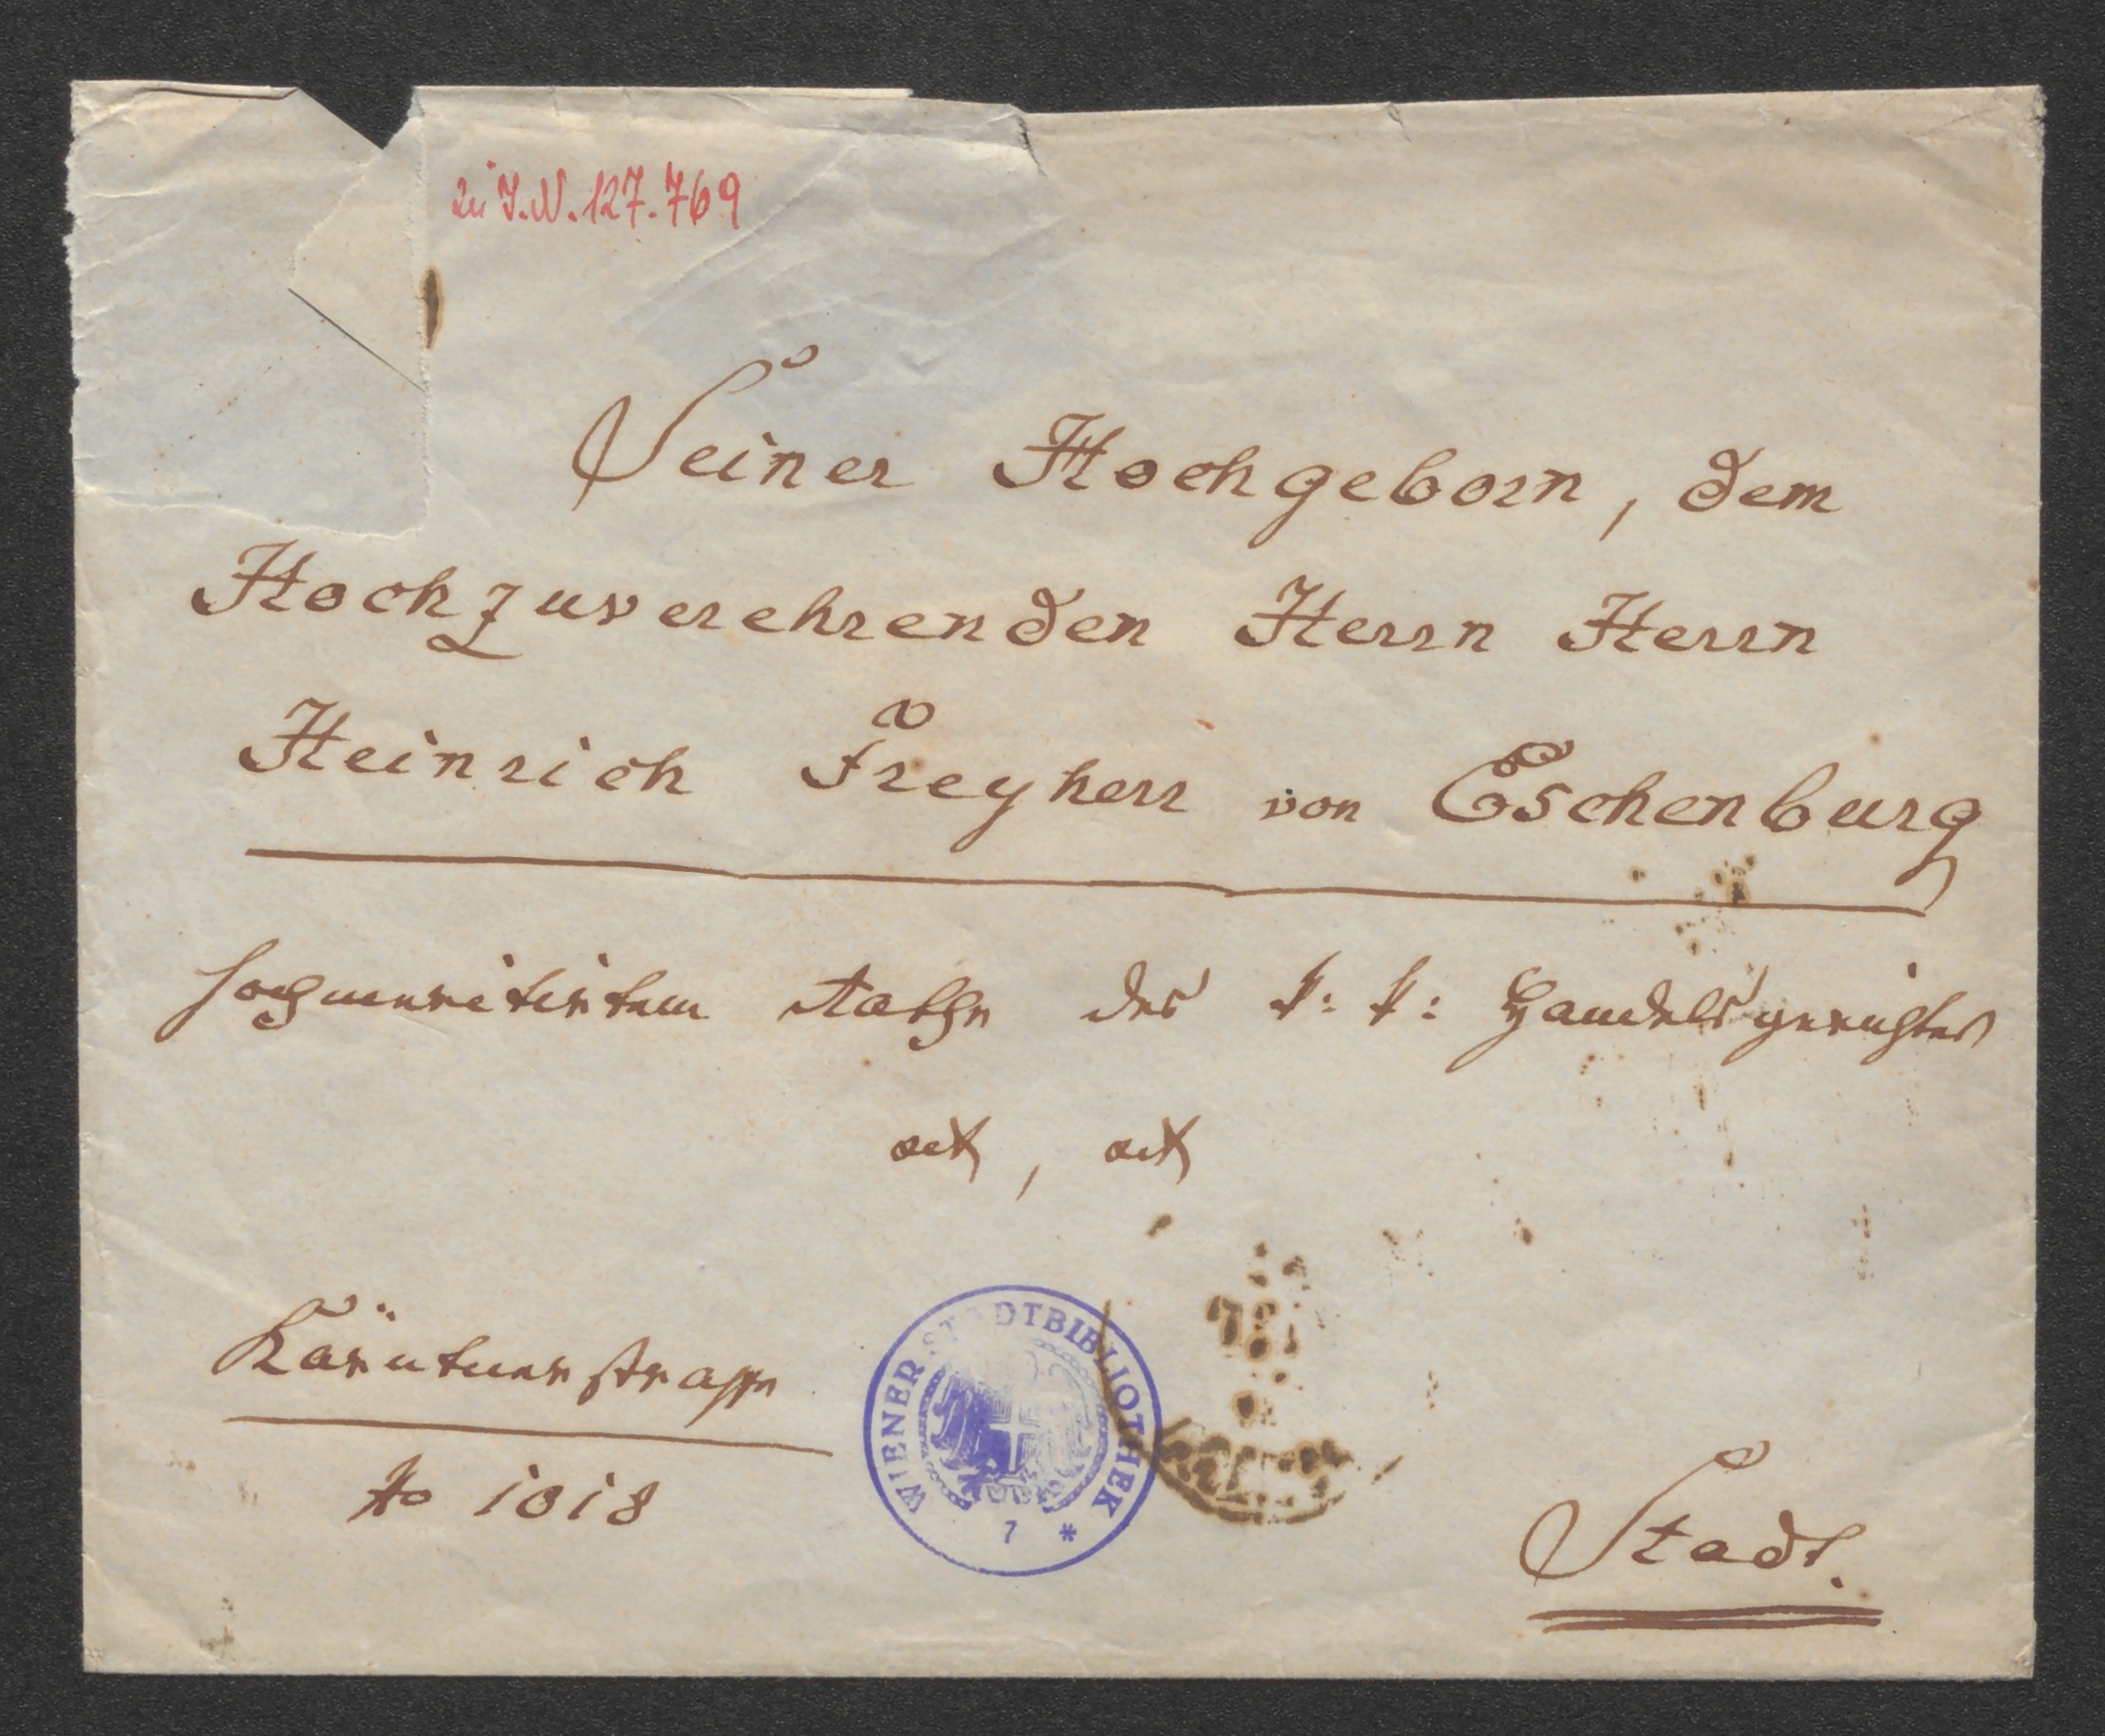 zu I.N. 127.769
Seiner Hochgeborn, dem
Hochzuverehrenden Herrn Herrn
Heinrich Freyherr von Eschenburg
hochmeritirtem Rathe des k: k: Handelsgerichtes
etc, etc
Kärntnerstrasse
No 1018
WIENER STADTBIBLIOTHEK
7 *
Stadt.